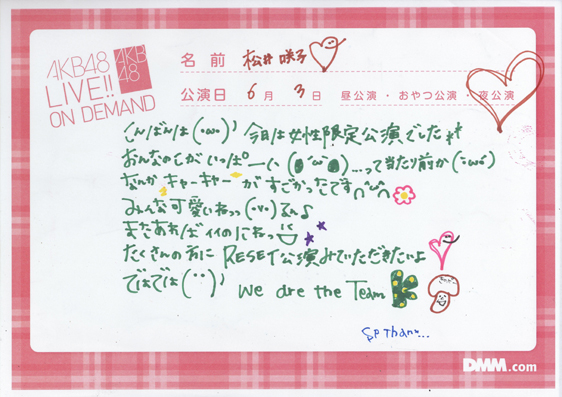 AKB48
LIVE!!
ON DEMAND
AKB
48
名前 松井咲子
公演日 6月 3日 昼公演・おやつ公演・夜公演
こんばんは(・ω・)' 今日は女性限定公演でした
おんなのこがいっぱーい(●´ω`●)...って当たり前か(・ω・)
なんかキャーキャーがすごかったです∩^ω^∩
みんな可愛いねっっ(・v・)てへ♪
またあればイイのにねっ
たくさんの方にRESET公演みていただきたいよ
ではでは(・・)' We are the Team K
Sp Thanx...
DMM.com